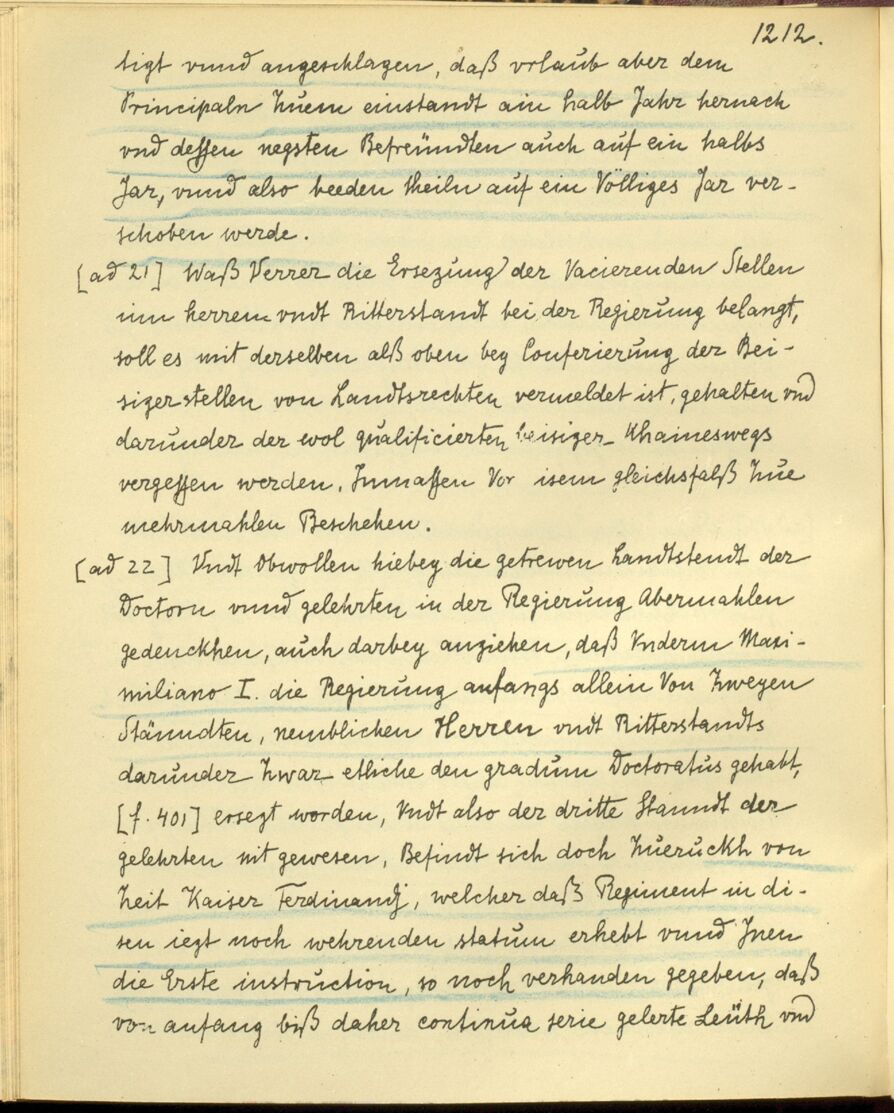 1212.
tigt vnnd angeschlagen, daß vrlaub aber dem
Principaln Zuem einstandt ain halb Jahr hernach
vnd dessen negsten Befreündten auch auf ein halbs
Jar, vnnd also beeden theiln auf ein Völliges Jar ver-
schoben werde.
[ad 21] Waß Verrer die Ersezung der Vacierenden Stellen
inn herren vndt Ritterstandt bei der Regierung belangt,
soll es mit derselben alß oben bey Conferierung der Bei-
sizerstellen von Landtsrechten vermeldet ist, gehalten vnd
darunder der wol qualificierten beisizer Khaineswegs
vergessen werden, Inmassen Vor isem gleichsfalß Zue
mehrmahlen Beschehen.
[ad 22] Vndt Obwollen hiebey die getrewen Landtstendt der
Doctorn vnnd gelehrten in der Regierung Abermahlen
gedenckhen, auch darbey anziehen, daß Vnderm Maxi-
miliano I. die Regierung anfangs allein Von Zweyen
Stänndten, nemblichen Herren vndt Ritterstandts
darunder Zwar etliche den gradum Doctoratus gehabt,
[f. 401] ersezt worden, Vndt also der dritte Stanndt der
gelehrten nit gewesen, Befindt sich doch Zueruckh von
Zeit Kaiser Ferdinandj, welcher daß Regiment in di-
sen iezt noch wehrenden statum erhebt vnnd Jnen
die Erste instruction, so noch verhanden gegeben, daß
von anfang biß daher continua serie gelerte Leüth vnd